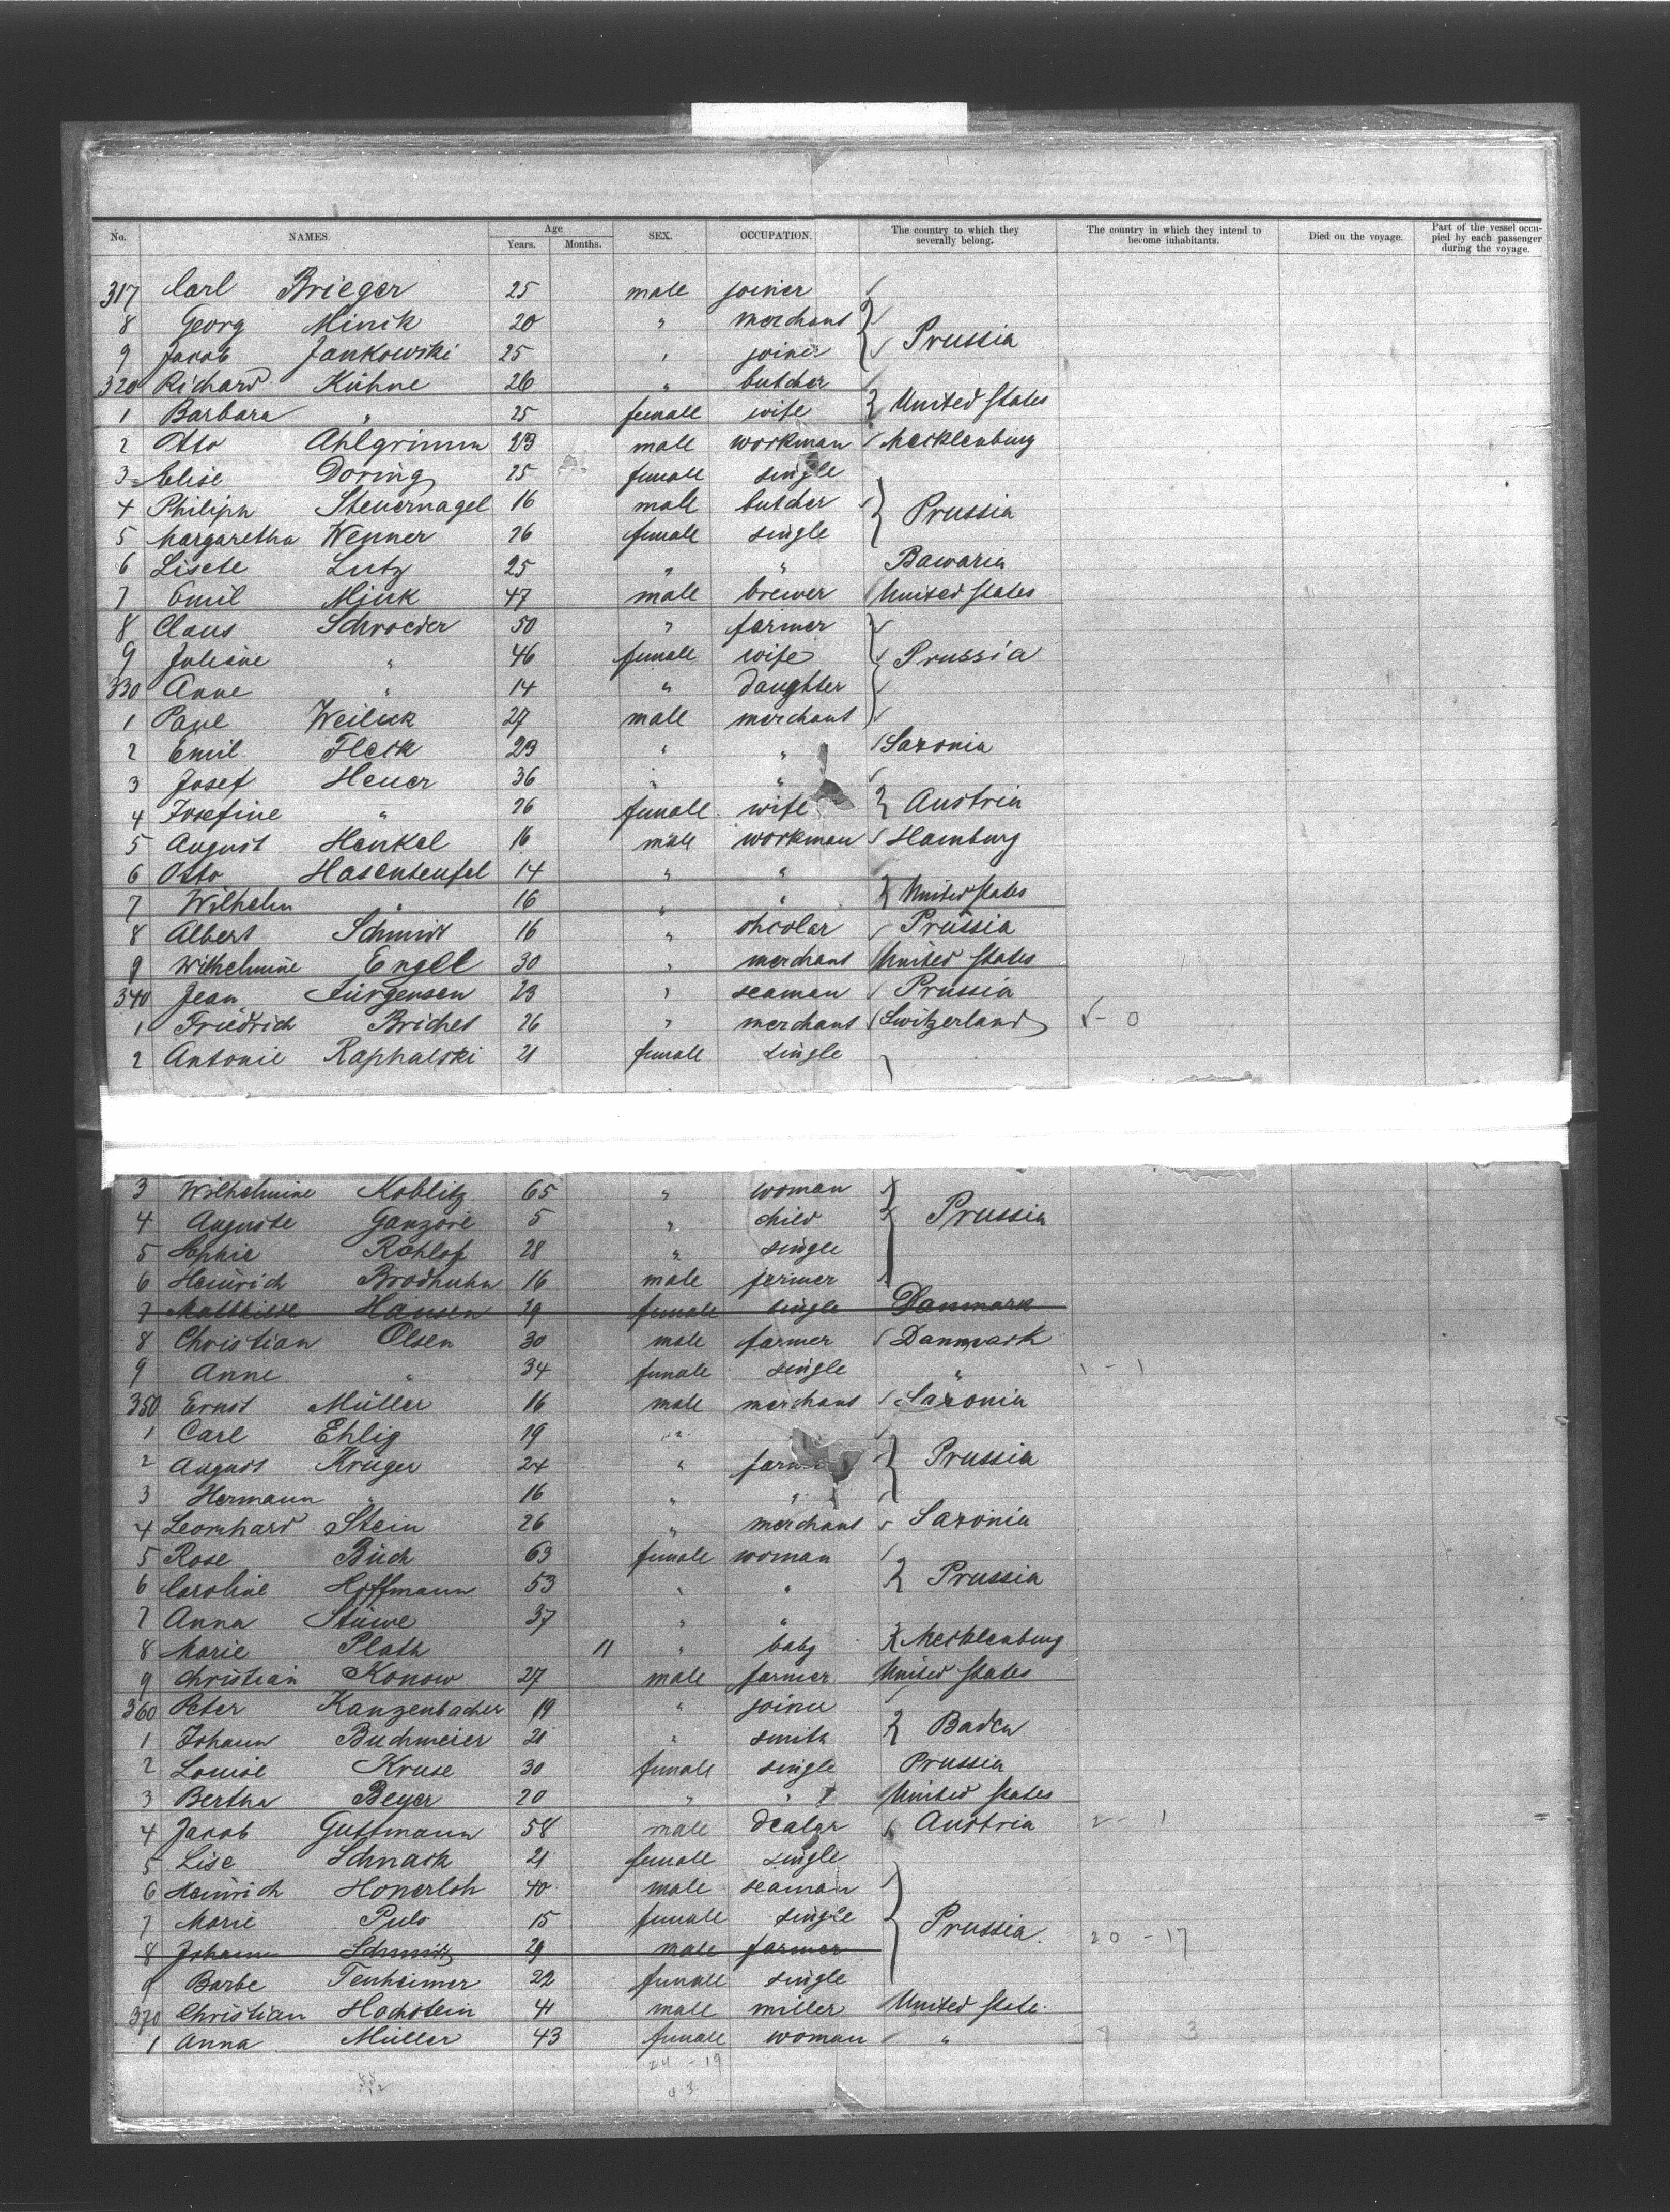 No. NAMES. Age Years. Months. SEX. OCCUPATION. The country to which they severally belong. The country in which they intend to become inhabitants. Died on the voyage. Part of the vessel occupied by each passenger during the voyage.
317 Carl Brieger 25 male joiner
8 Georg Minik 20 " merchant Prussia
9 Jacob Jankowski 25 " joiner
320 Richard Kühne 26 " butcher
1 Barbara " 25 female wife United States
2 Otto Ahlgrimm 23 male workman Mecklenburg
3 Elise Doring 25 female single
4 Philipp Steuernagel 16 male butcher Prussia
5 Margaretha Wenner 26 female single
6 Lisete Lutz 25 " " Bawaria
7 Emil Mink 47 male brewer United States
8 Claus Schroeder 50 " farmer
9 Juliane " 46 female wife Prussia
330 Anne " 14 " daughter
1 Paul Weilick 27 male merchant
2 Emil Fleck 23 " " Saxonia
3 Josef Heuer 36 " "
4 Josefine " 26 female wife Austria
5 August Henkel 16 male workman Hamburg
6 Otto Hasenteufel 14 " "
7 Wilhelm " 16 " " United States
8 Albert Schmidt 16 " shcolar Prussia
9 Wilhelmine Engel 30 " merchant United States
340 Jean Jürgensen 23 " seaman Prussia
1 Friedrich Brichet 26 " merchant Switzerland - 0
2 Antonie Raphalski 21 female single
3 Wilhelmine Koblitz 65 " woman
4 Auguste Ganzore 5 " child Prussia
5 Sophie Rohlof 28 " single
6 Heinrich Brodhuhn 16 male farmer
7 Mathilde Hansen 29 female single Danmark
8 Christian Olsen 30 male farmer Danmark
9 Anne " 34 female single " 1 - 1
350 Ernst Müller 16 male merchant Saxonia
1 Carl Ehlig 19 " "
2 August Krüger 24 " farmer Prussia
3 Hermann " 16 " "
4 Leonhard Stein 26 " merchant Saxonia
5 Rose Büch 63 female woman
6 Caroline Hoffmann 53 " " Prussia
7 Anna Stüwe 37 " "
8 Marie Plath 11 " baby Mecklenburg
9 Christian Konow 27 male farmer United States
360 Peter Kanzenbacher 19 " joiner
1 Johann Buchmeier 21 " smith Baden
2 Louise Kruse 30 female single Prussia
3 Bertha Beyer 20 " " United States
4 Jacob Guttmann 58 male dealar Austria 2 - 1
5 Lise Schnack 21 female single
6 Heinrich Honerloh 40 male seaman
7 Marie Puls 15 female single Prussia. 20 - 17
8 Johann Schmidt 29 male farmer
9 Barbe Tenheimer 22 female single
370 Christian Hochstein 41 male miller United State.
1 Anna Müller 43 female woman " 3
24 - 19
43